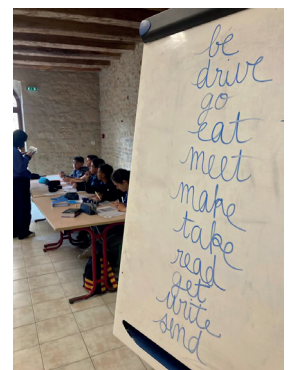 be
drive
go
eat
meet
make
take
read
get
write
send